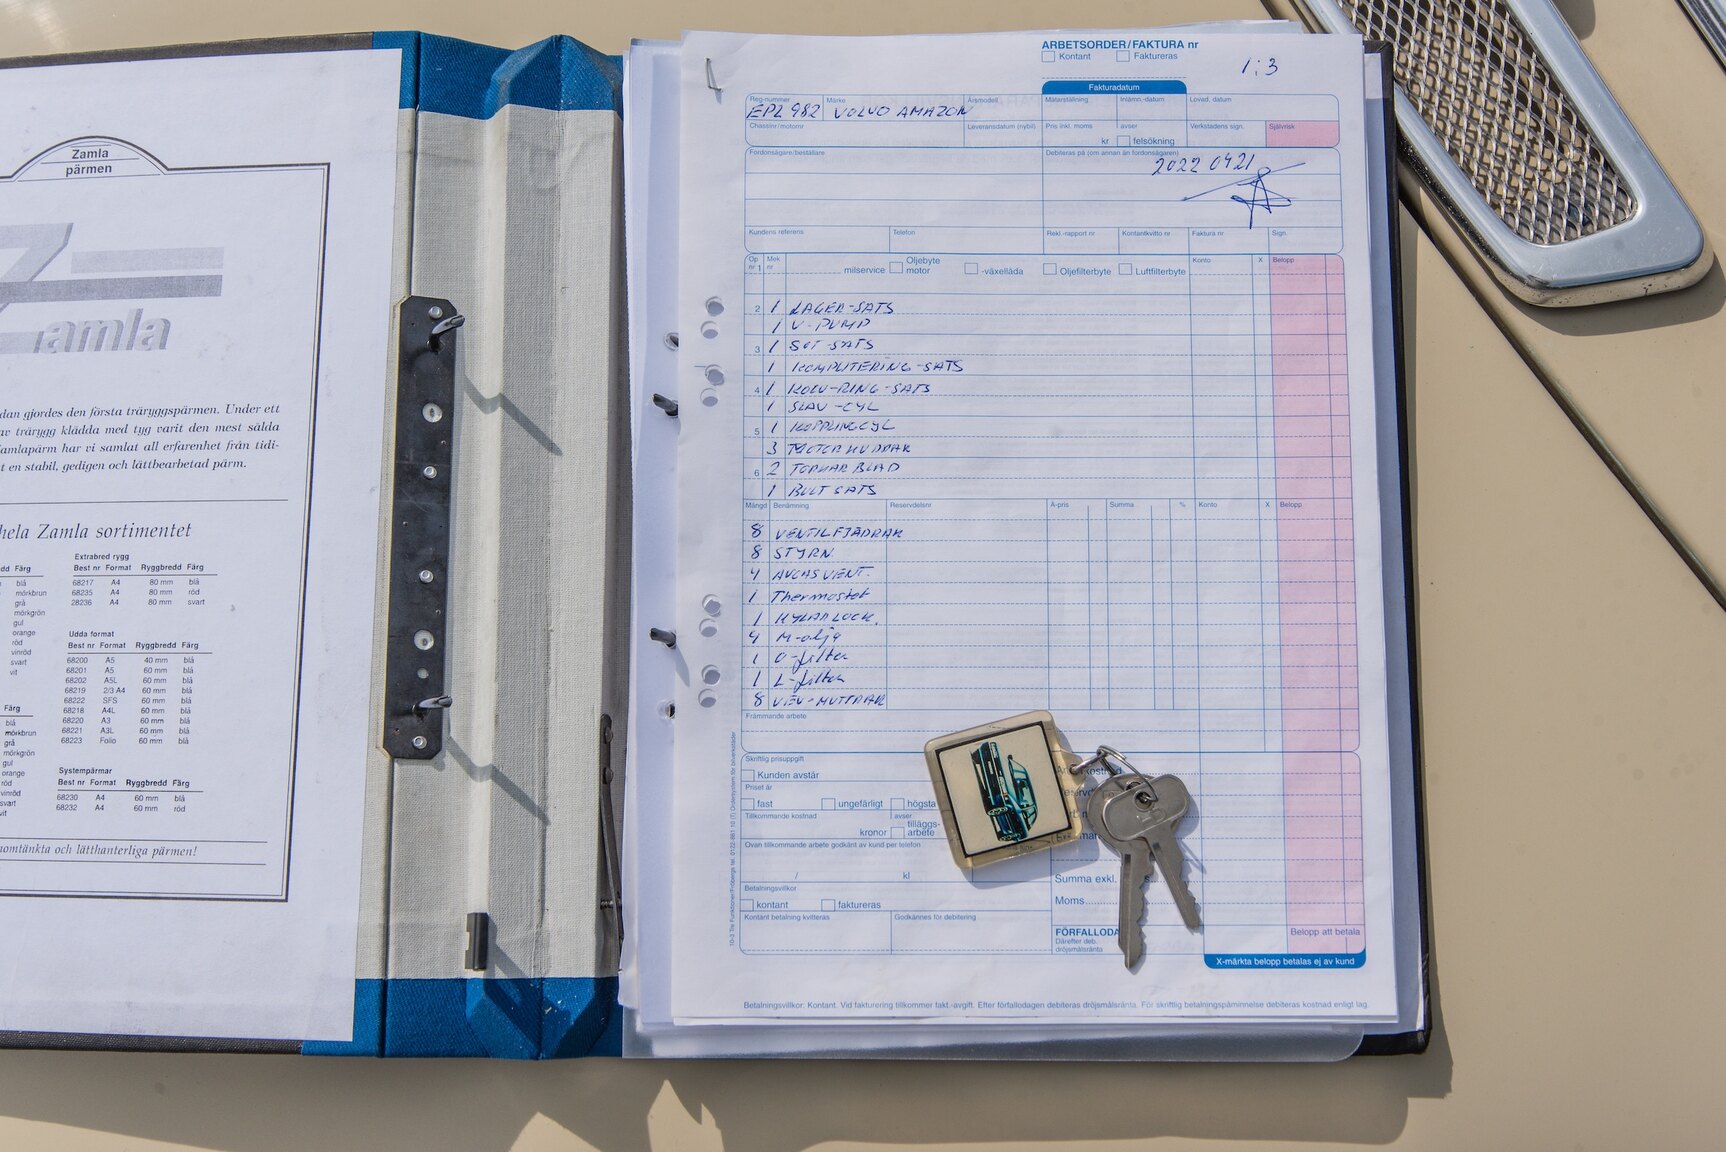 Zamla
pärmen
amla
dan gjordes den första träryggspärmen. Under ett
av trärygg klädda med tyg varit den mest sålda
amlapärm har vi samlat all erfarenhet från tidi-
t en stabil, gedigen och lättbearbetad pärm.
hela Zamla sortimentet
Extrabred rygg
Färg Best nr Format Ryggbredd Färg
blå 68217 A4 80 mm blå
mörkbrun 68235 A4 80 mm röd
grå 28236 A4 80 mm svart
mörkgrön
gul
orange Udda format
röd Best nr Format Ryggbredd Färg
vinröd 68200 A5 40 mm blå
svart 68201 A5 60 mm blå
vit 68202 A5L 60 mm blå
68219 2/3 A4 60 mm blå
68222 SFS 60 mm blå
Färg 68218 A4L 60 mm blå
blå 68220 A3 60 mm blå
mörkbrun 68221 A3L 60 mm blå
grå 68223 Folio 60 mm blå
mörkgrön
gul Systempärmar
orange Best nr Format Ryggbredd Färg
röd 68230 A4 60 mm blå
vinröd 68232 A4 60 mm röd
svart
vit
nomtänkta och lätthanterliga pärmen!
ARBETSORDER/FAKTURA nr
Kontant Faktureras
1:3
Fakturadatum
Reg-nummer Märke Årsmodell Mätarställning Inlämn.-datum Lovad, datum
EPZ 982 VOLVO AMAZON
Chassinr/motornr Leveransdatum (nybil) Pris inkl. moms avser Verkstadens sign. Självrisk
kr felsökning
Fordonsägare/beställare Debiteras på (om annan än fordonsägaren)
2022 0421
Kundens referens Telefon Rekl.-rapport nr Kontantkvitto nr Faktura nr Sign.
Op nr Mek nr Konto X Belopp
1 milservice Oljebyte motor -växellåda Oljefilterbyte Luftfilterbyte
2 1 LAGER-SATS
1 V-PUMP
3 1 SOT-SATS
1 KOMPLITERING-SATS
4 1 KOLV-RING-SATS
1 SLAV-CYL
5 1 KOPPLINGCYL
3 MOTORKUDDAR
6 2 TORKARBLAD
1 BULT SATS
Mängd Benämning Reservdelsnr À-pris Summa % Konto X Belopp
8 VENTILFJÄDRAR
8 STYRN.
4 AVGASVENT.
1 Thermostat
1 KYLARLOCK.
4 M-olja
1 O-filter
1 L-filter
8 VEV-MUTTRAR
Främmande arbete
Skriftlig prisuppgift
Kunden avstår
Priset är
fast ungefärligt högsta
Tillkommande kostnad avser
kronor tilläggs-arbete
Ovan tillkommande arbete godkänt av kund per telefon
/ kl
Betalningsvillkor
kontant faktureras
Kontant betalning kvitteras Godkännes för debitering
Summa exkl.
Moms
FÖRFALLODA
Därefter deb.
dröjsmålsränta
Belopp att betala
X-märkta belopp betalas ej av kund
Betalningsvillkor: Kontant. Vid fakturering tillkommer fakt.-avgift. Efter förfallodagen debiteras dröjsmålsränta. För skriftlig betalningspåminnelse debiteras kostnad enligt lag.